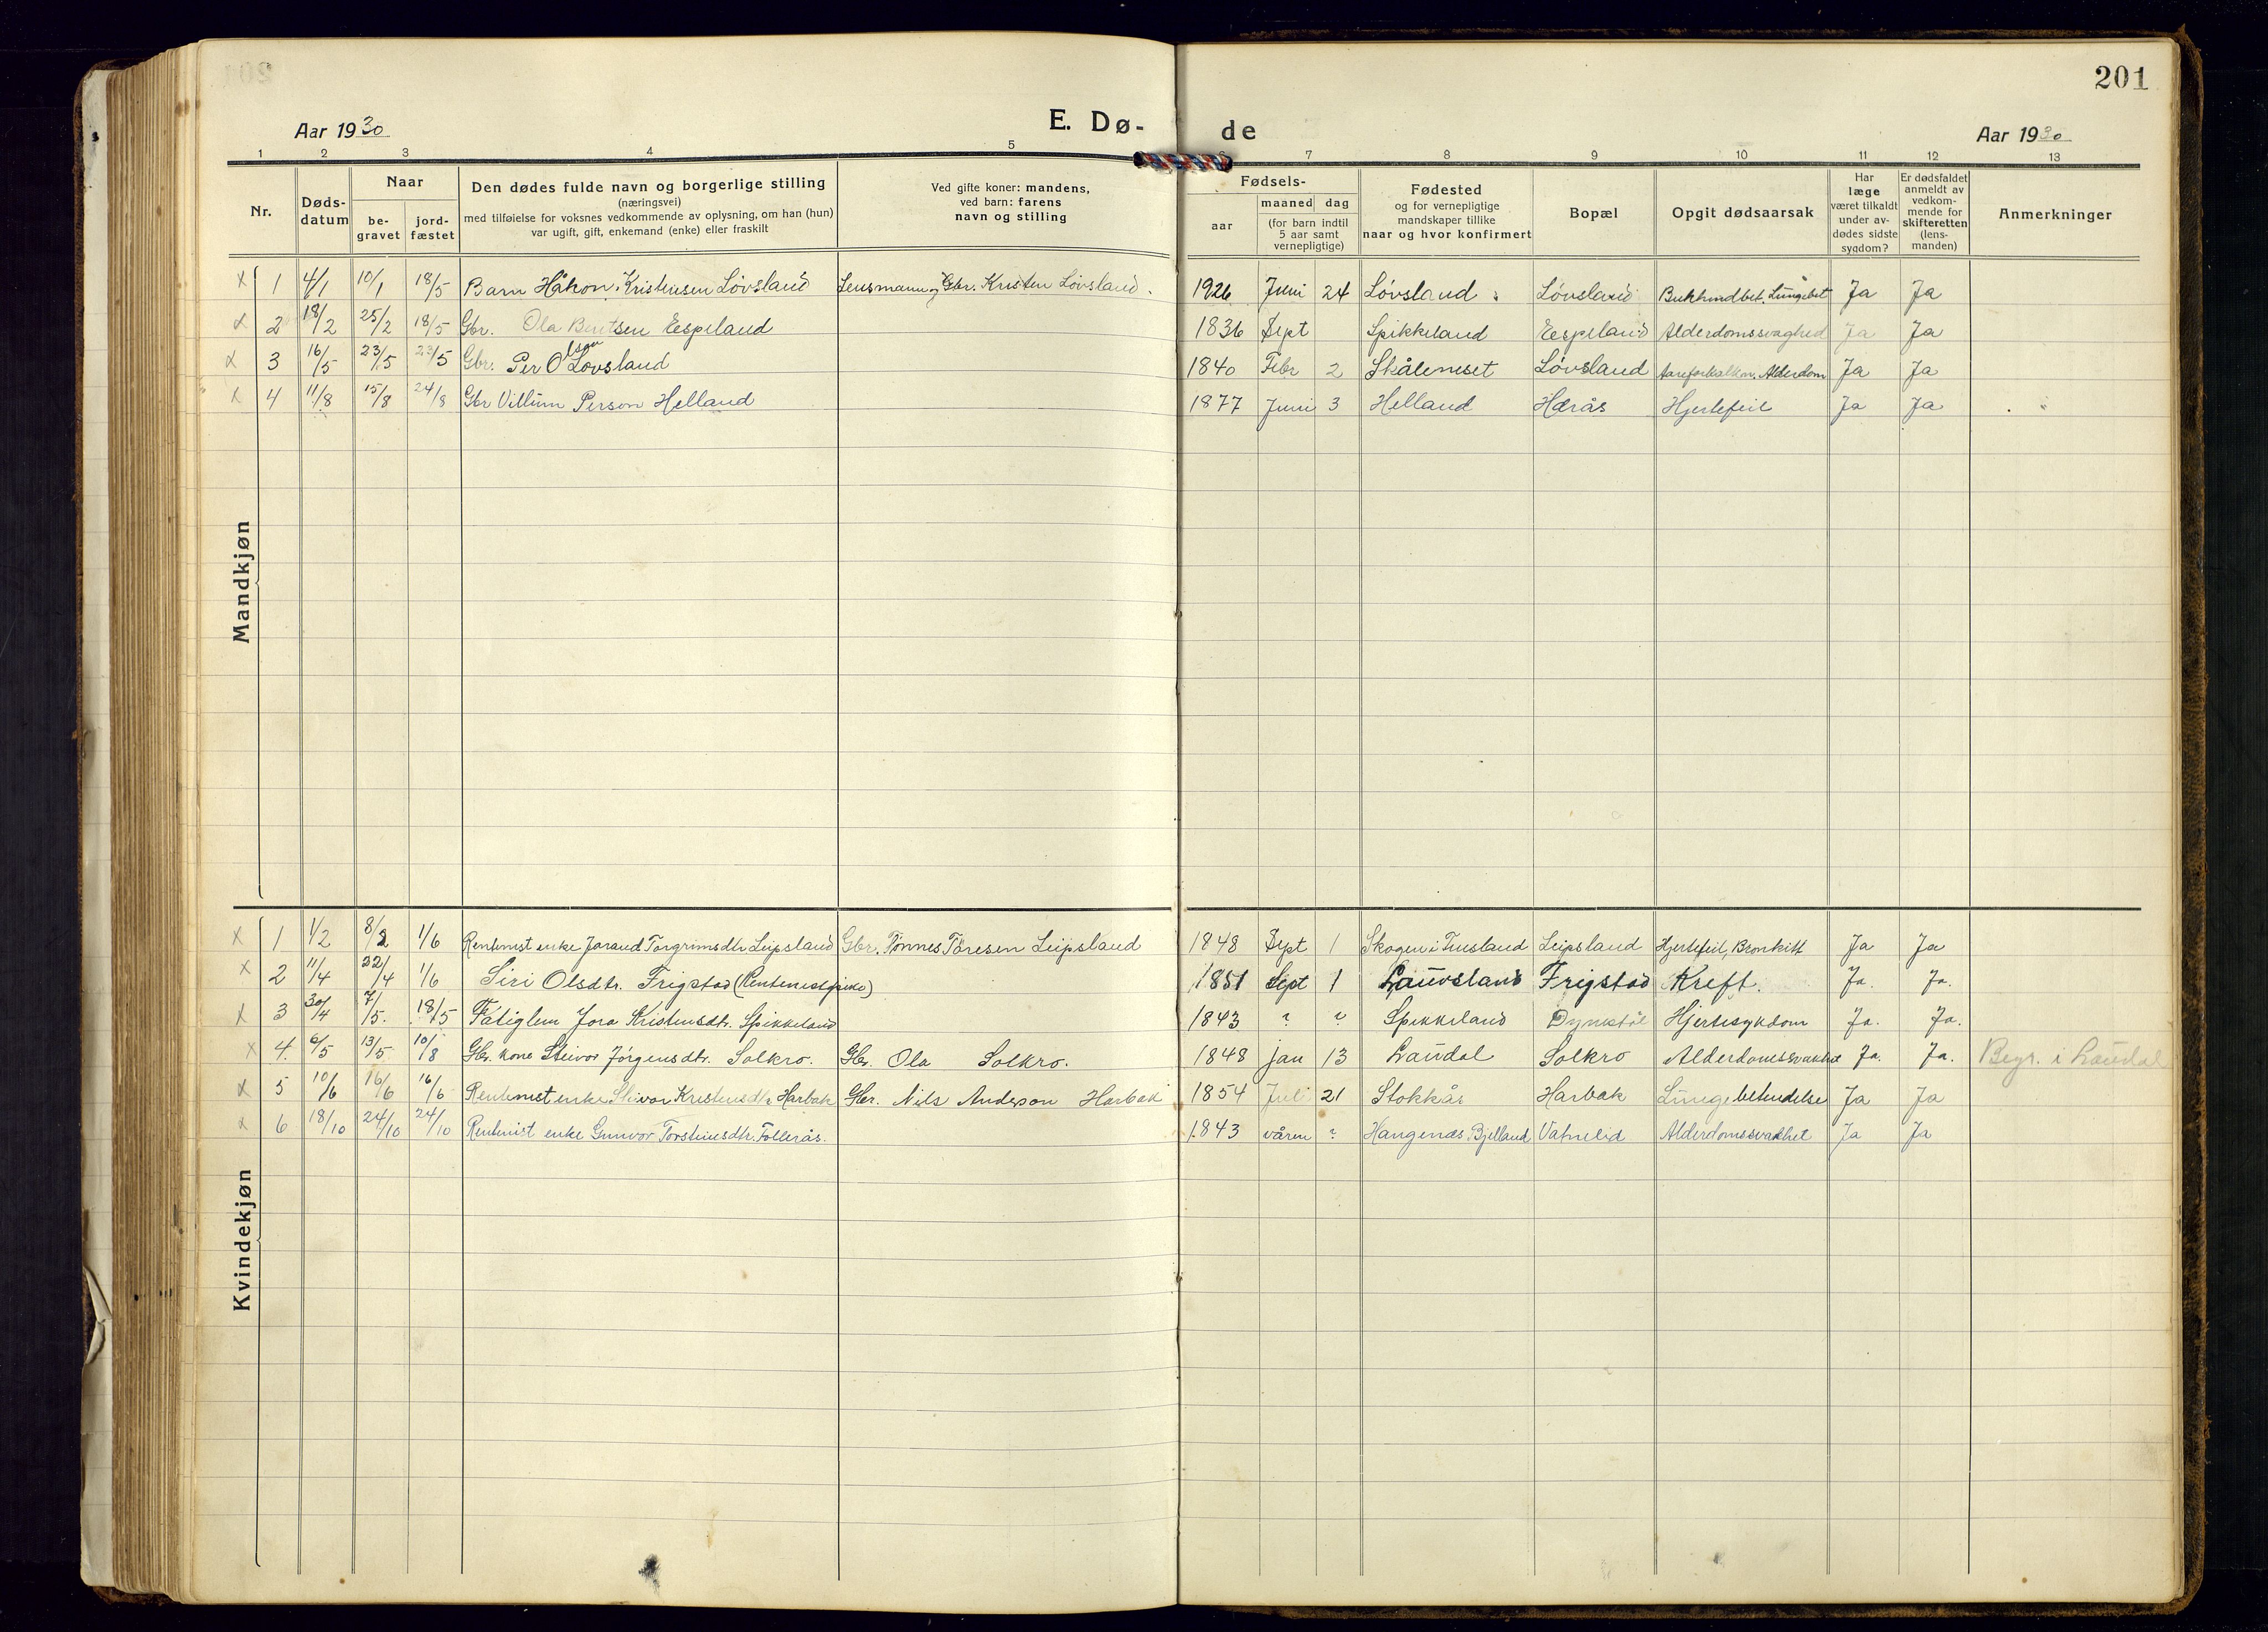 201
Aar 1930 E. Dø- de Aar 1930
1 2 3 4 5 6 7 8 9 10 11 12 13
Nr.
Døds-
datum
Naar
be-
gravet
jord-
fæstet
Den dødes fulde navn og borgerlige stilling
(næringsvei)
med tilføielse for voksnes vedkommende av oplysning, om han (hun)
var ugift, gift, enkemand (enke) eller fraskilt
Ved gifte koner: mandens,
ved barn: farens
navn og stilling
Fødsels-
aar
maaned dag
(for barn indtil
5 aar samt
vernepligtige)
Fødested
og for vernepligtige
mandskaper tillike
naar og hvor konfirmert
Bopæl
Opgit dødsaarsak
Har
læge
været tilkaldt
under av-
dødes sidste
sygdom?
Er dødsfaldet
anmeldt av
vedkom-
mende for
skifteretten
(lens-
manden)
Anmerkninger
Mandkjøn
x 1 4/1 10/1 18/5 Barn Håkon Kristensen Lövsland Lensmann og Gbr. Kristen Lövsland. 1926 Juni 24 Lövsland Lövsland Lungebet Ja Ja
x 2 18/2 25/2 18/5 Gbr. Ola Bentsen Eespeland 1836 Sept Spikkeland Eespeland Alderdomssvaghed Ja Ja
x 3 16/5 23/5 23/5 Gbr. Per Olsen Lovsland 1840 Febr 2 Skåleneset Lövsland Aareforkalkn. Alderdom Ja Ja
x 4 11/8 15/8 24/8 Gbr Villum Person Helland 1877 Juni 3 Helland Hærås Hjertefeil Ja Ja
Kvindekjøn
x 1 1/2 8/2 1/6 Rentenist enke Joraud Torgrimsdtr Leipsland Gbr. Tönnes Töresen Leipsland 1848 Sept 1 Skogen i Leipsland Hjertefeil, Bronkitt Ja Ja
x 2 11/4 22/4 1/6 Siri Olsdtr. Frigstad (Rentenist pike) 1851 Sept 1 Lauvsland Frigstad Kreft. Ja. Ja.
x 3 30/4 7/5. 18/5 Fatiglem Jora Kristensdtr. Spikkeland 1843 ? ? Spikkeland Hjertesykdom Ja. Ja.
x 4. 6/5 13/5 10/8 Gbr. kone Steivor Jörgensdtr. Solkro. Gbr. Ola Solkro. 1848 jan 13 Laudal Solkro Alderdomssvakhet Ja. Ja. Begr. i Laudal
x 5 10/6 16/6 16/6 Rentenist enke Steivor Kristensdtr Harbak Gbr. Nils Anderson Harbak 1854 Juli 21 Stokkås Harbak Lungebetendelse Ja Ja
x 6 18/10 24/10 24/10 Rentenist enke Gunvor Torsteinsdtr. Follerås. 1843 våren ? Hangenæs, Bjelland Vatnelid Alderdomssvakhet Ja Ja